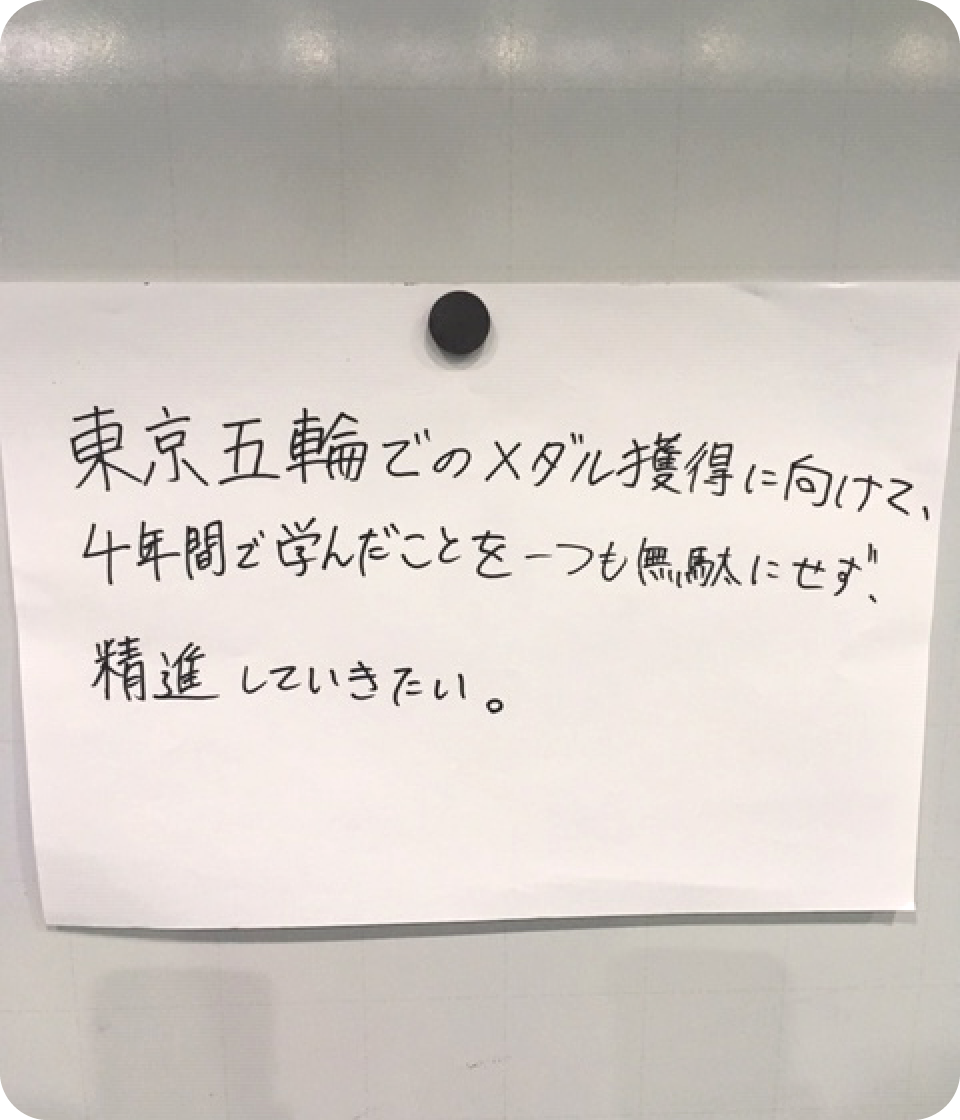 東京五輪でのメダル獲得に向けて、
4年間で学んだことを一つも無駄にせず、
精進していきたい。